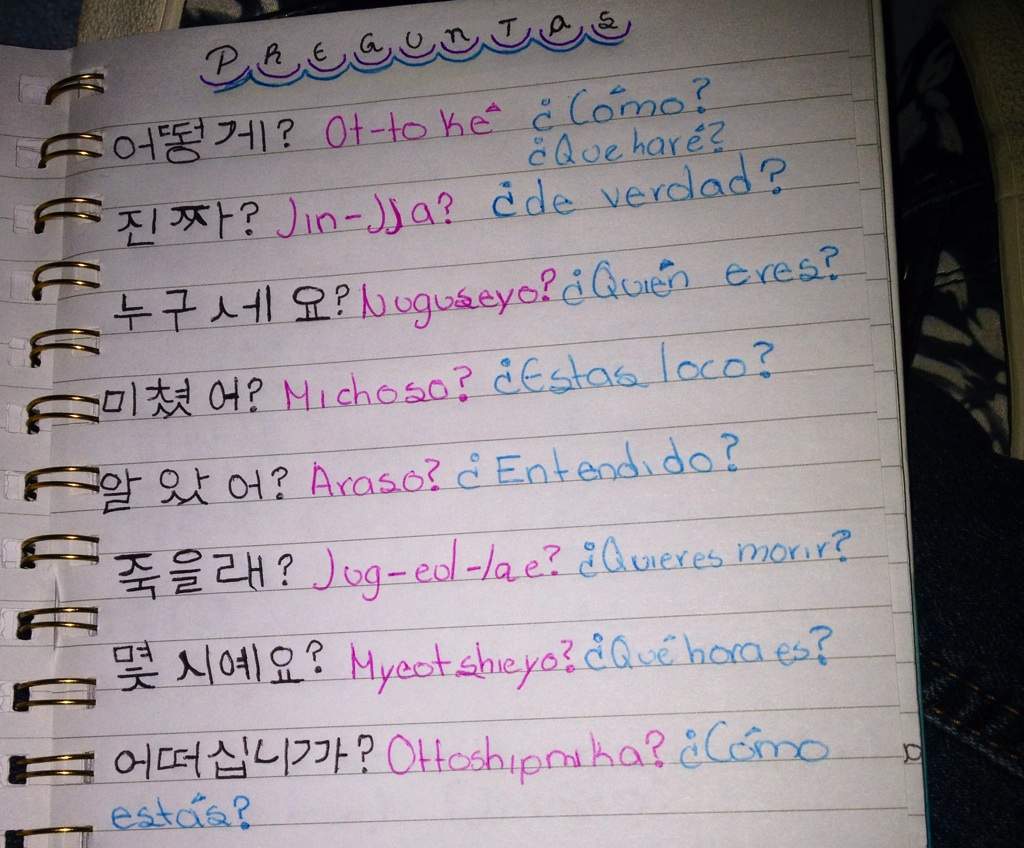 PREGUNTAS
어떻게? Ot-to ké ¿Cómo?
¿Que haré?
진짜? Jin-Jja? ¿de verdad?
누구세요? Nuguseyo? ¿Quién eres?
미쳤어? Michoso? ¿Estas loco?
알왔어? Araso? ¿Entendido?
죽을래? Jug-eol-lae? ¿Quieres morir?
몇 시예요? Myeotshieyo? ¿Qué hora es?
어떠십니까? Ottoshipnika? ¿Cómo
estás?